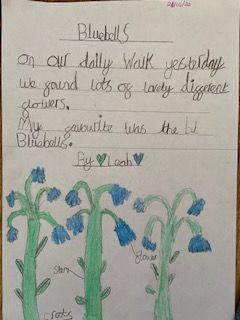 21/04/20
Bluebells
On our daily Walk yesterday
we found lots of lovely different
flowers.
My favourite was the bl
Bluebells.
By 💚 Leah 💙
Stem
flower
roots